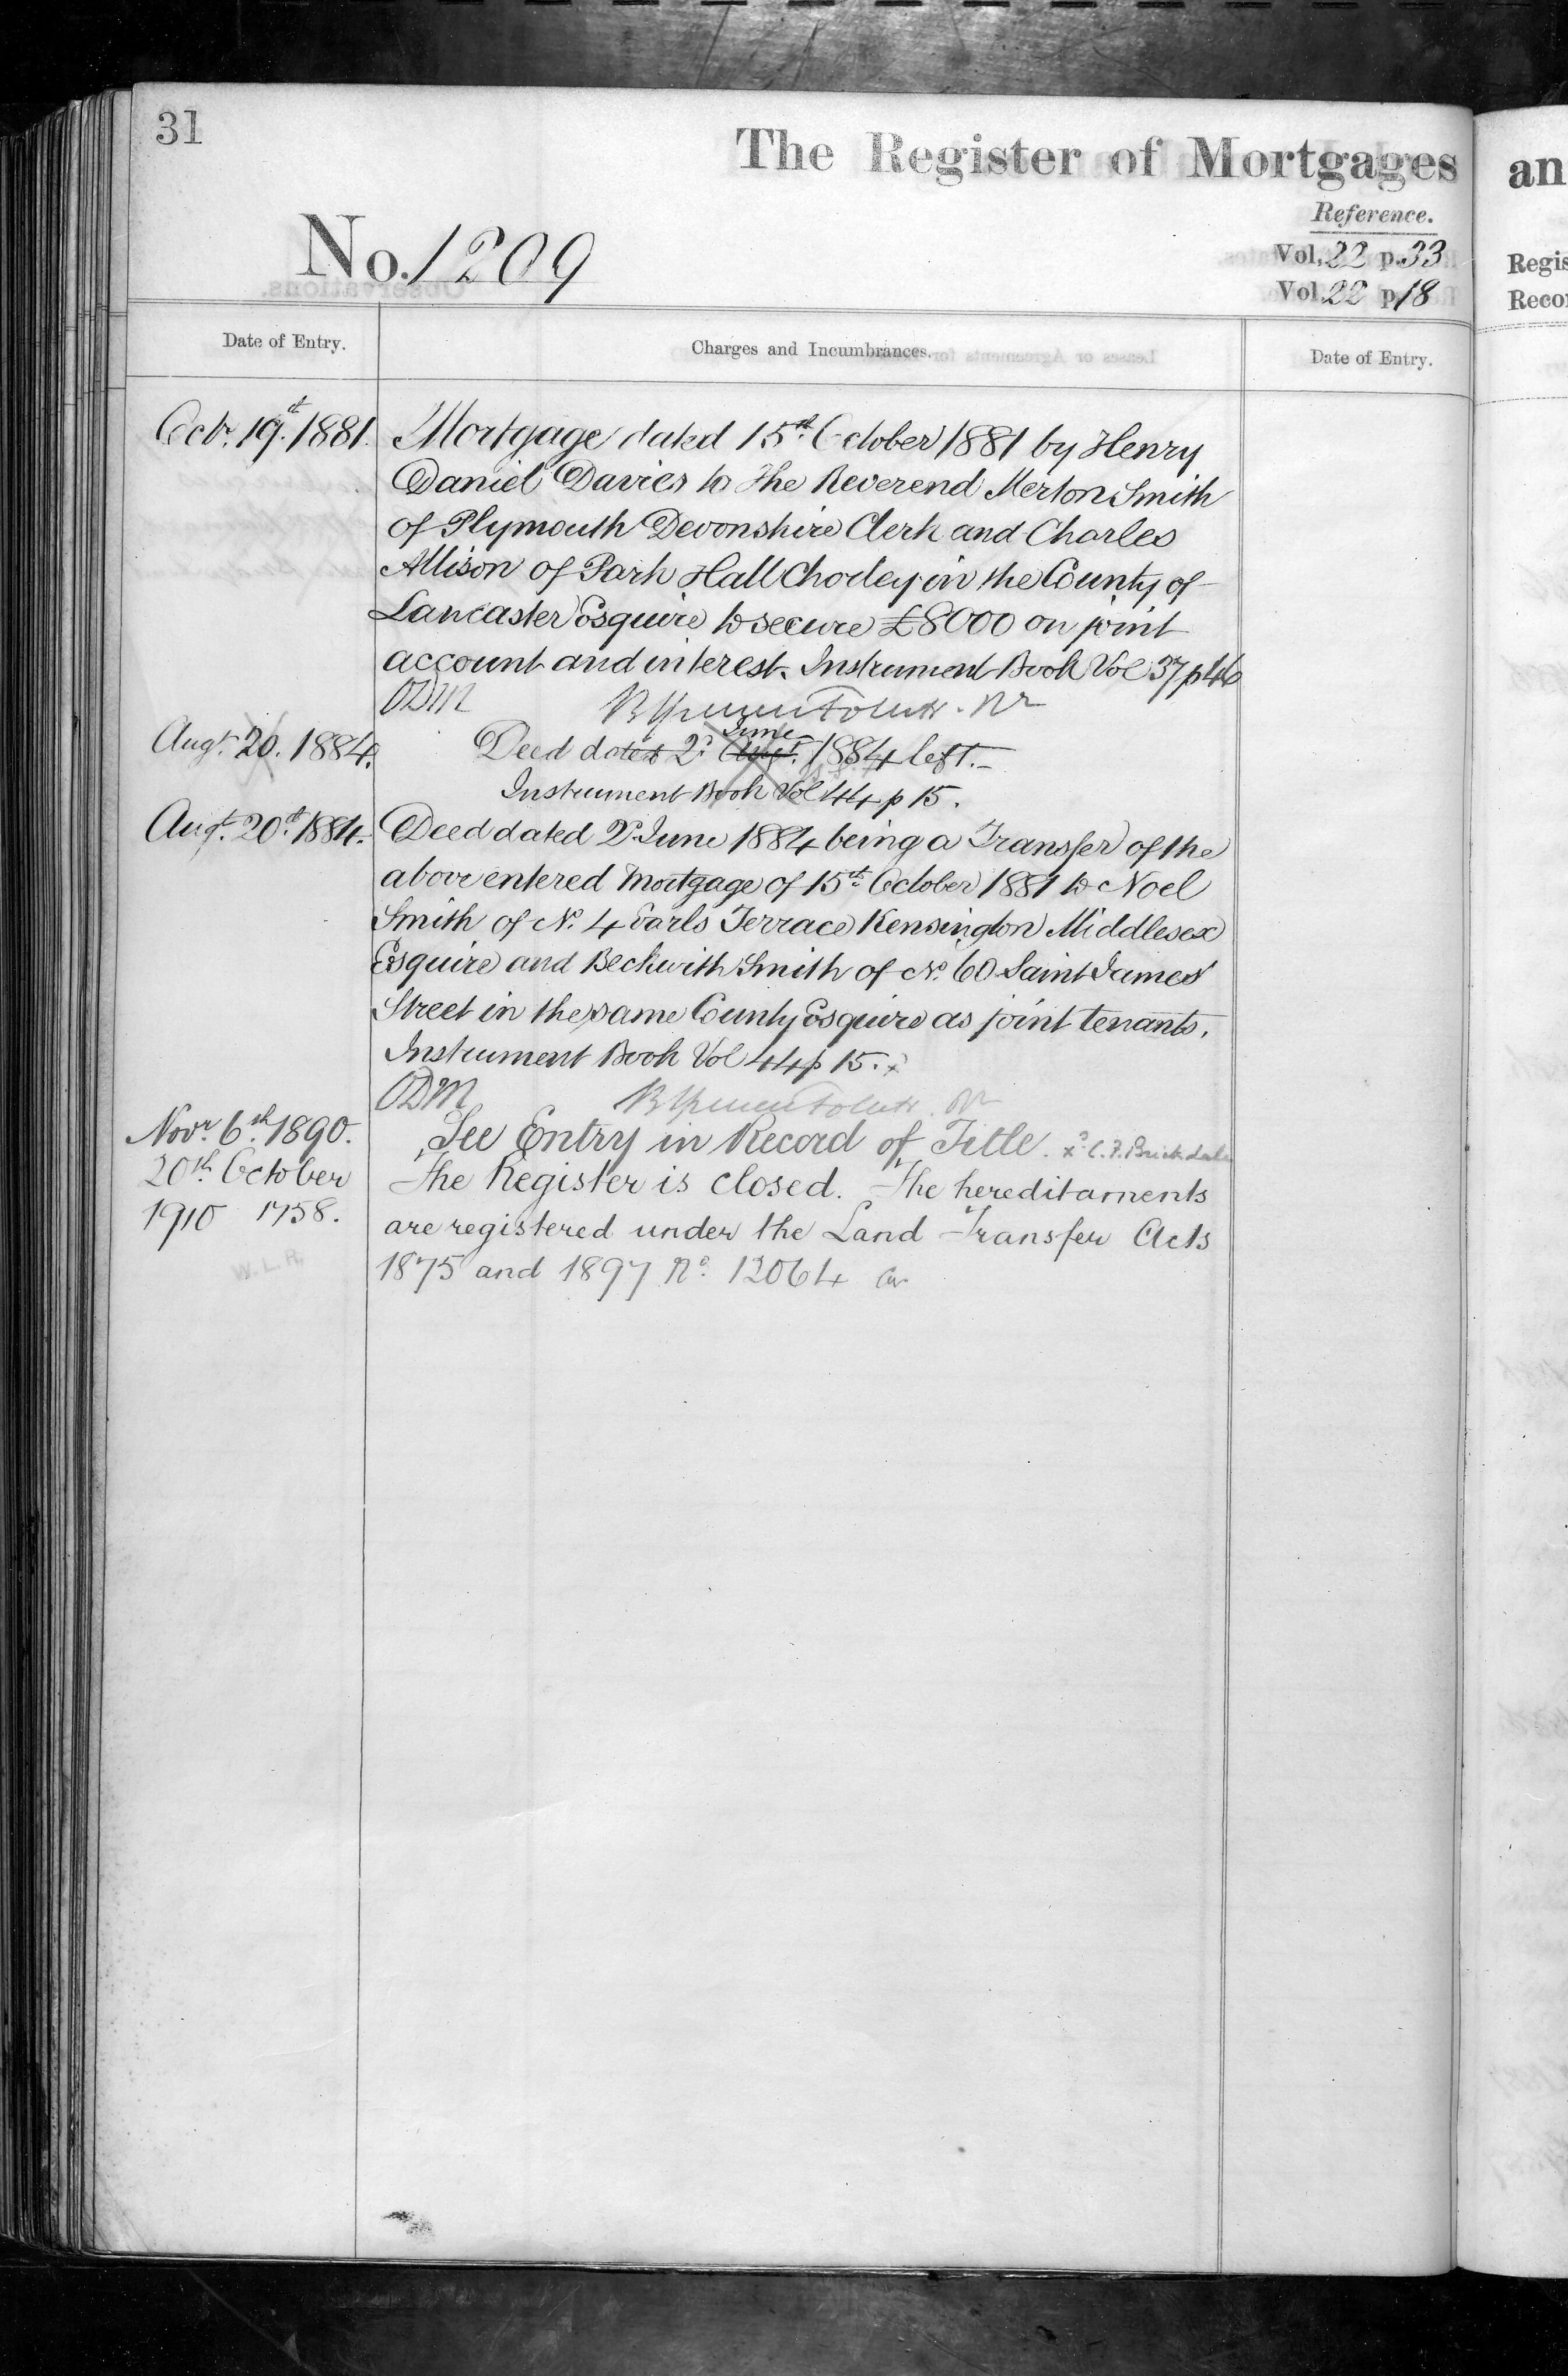 31
The Register of Mortgages
an
Reference.
No. 1209
Vol. 22 p. 33
Regis
Vol. 22 p. 18
Recor
Date of Entry.
Charges and Incumbrances.
Date of Entry.
Octr. 19th. 1881.
Mortgage dated 15th. October 1881 by Henry
Daniel Davies to The Reverend Merton Smith
of Plymouth Devonshire Clerk and Charles
Allison of Park Hall Chorley in the County of
Lancaster Esquire to secure £8000 on joint
account and interest. Instrument Book Vol 37 p 46
ODM
June
Augt. 20. 1884.
Deed dated 2d. Augt. 1884 left.
Instrument Book Vol 44 p 15.
Augt. 20th. 1884.
Deed dated 2d June 1884 being a Transfer of the
above entered Mortgage of 15th. October 1881 to Noel
Smith of No. 4 Earls Terrace Kensington Middlesex
Esquire and Beckwith Smith of No. 60 Saint James'
Street in the same County Esquire as joint tenants.
Instrument Book Vol 44 p 15. x
ODM
Novr. 6th. 1890.
See Entry in Record of Title. C. F. Brickdale
20th. October
The Register is closed. The hereditaments
1910 1758.
are registered under the Land Transfer Acts
W. L. R.
1875 and 1897 No. 12064